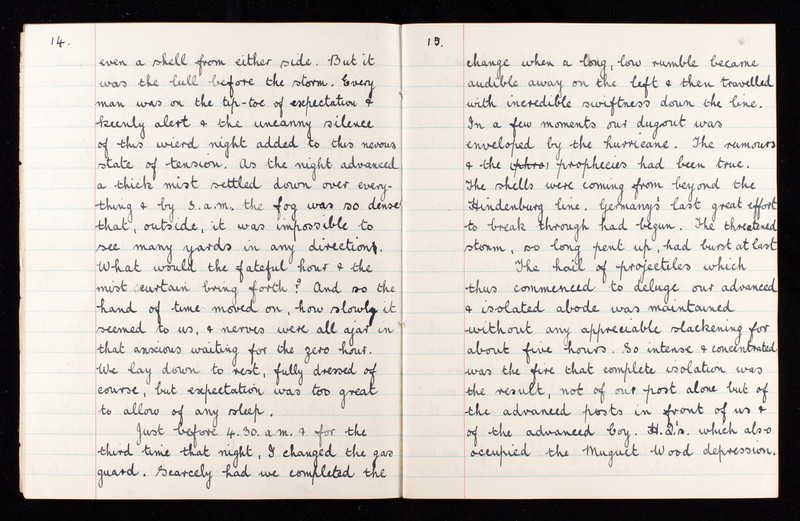 14.
even a shell from either side. But it
was the lull before the storm. Every
man was on the tip-toe of expectation &
keenly alert & the uncanny silence
of this wierd night added to this nervous
state of tension. As the night advanced
a thick mist settled down over every-
thing & by 3.a.m. the fog was so dense
that, outside, it was impossible to
see many yards in any direction.
What would the fateful hour & the
mist curtain bring forth? And so the
hand of time moved on, how slowly it
seemed to us, & nerves were all ajar in
that anxious waiting for the zero hour.
We lay down to rest, fully dressed of
course, but expectation was too great
to allow of any sleep.
Just before 4.30. a.m. & for the
third time that night, I changed the gas
guard. Scarcely had we completed the
15.
change when a long, low rumble became
audible away on the left & then travelled
with incredible swiftness down the line.
In a few moments our dugout was
enveloped by the hurricane. The rumours
& the prophecies had been true.
The shells were coming from beyond the
Hindenburg line. Germany's last great effort
to break through had begun. The threatened
storm, so long pent up, had burst at last
The hail of projectiles which
thus commenced to deluge our advanced
& isolated abode was maintained
without any appreciable slackening for
about five hours. So intense & concentrated
was the fire that complete isolation was
the result, not of our post alone but of
the advanced posts in front of us &
of the advanced Coy. H.Q's. which also
occupied the Muguet Wood depression.